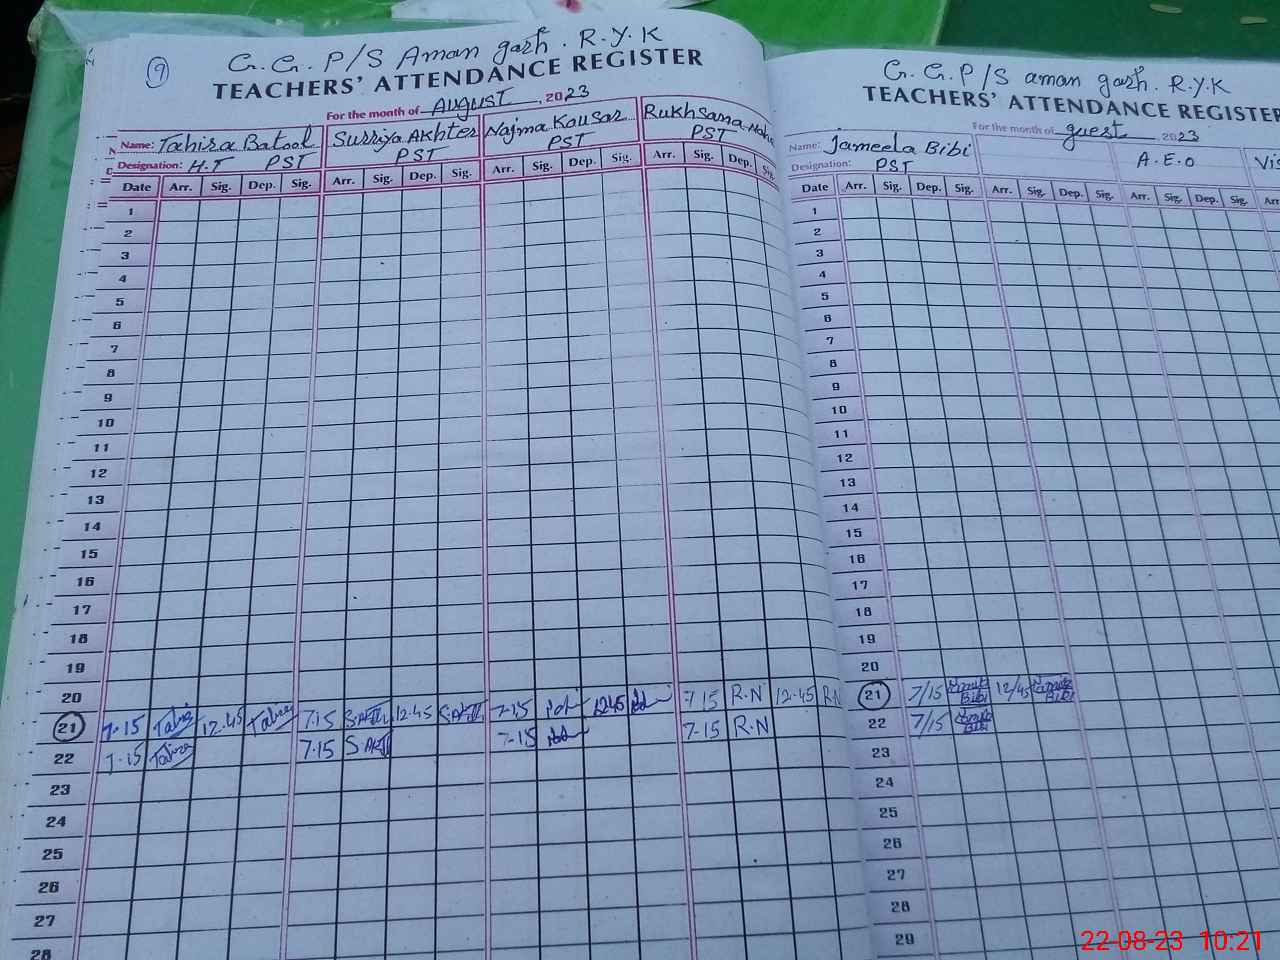 9
G. G. P/S Aman garh. R.Y.K
TEACHERS' ATTENDANCE REGISTER
For the month of August, 2023
Name: Tahira Batool Surriya Akhter Najma Kousar Rukhsana
Designation: H.T PST PST PST PST
Date Arr. Sig. Dep. Sig. Arr. Sig. Dep. Sig. Arr. Sig. Dep. Sig. Arr. Sig. Dep. Sig.
1
2
3
4
5
6
7
8
9
10
11
12
13
14
15
16
17
18
19
20
21 7-15 Tahira 12.45 Tahira 7.15 12.45 7-15 1245 7-15 R.N 12-45 R.N
22 7-15 Tahira 7.15 7-15 7-15 R.N
23
24
25
26
27
28
G. G. P/S aman garh. R.Y.K
TEACHERS' ATTENDANCE REGISTER
For the month of guest 2023
Name: Jameela Bibi
Designation: PST A.E.O Vis
Date Arr. Sig. Dep. Sig. Arr. Sig. Dep. Sig. Arr. Sig. Dep. Sig. Arr
1
2
3
4
5
6
7
8
9
10
11
12
13
14
15
16
17
18
19
20
21 7/15 Jamila Bibi 12/45 Jamila Bibi
22 7/15 Jamila Bibi
23
24
25
26
27
28
29
22-08-23 10:21